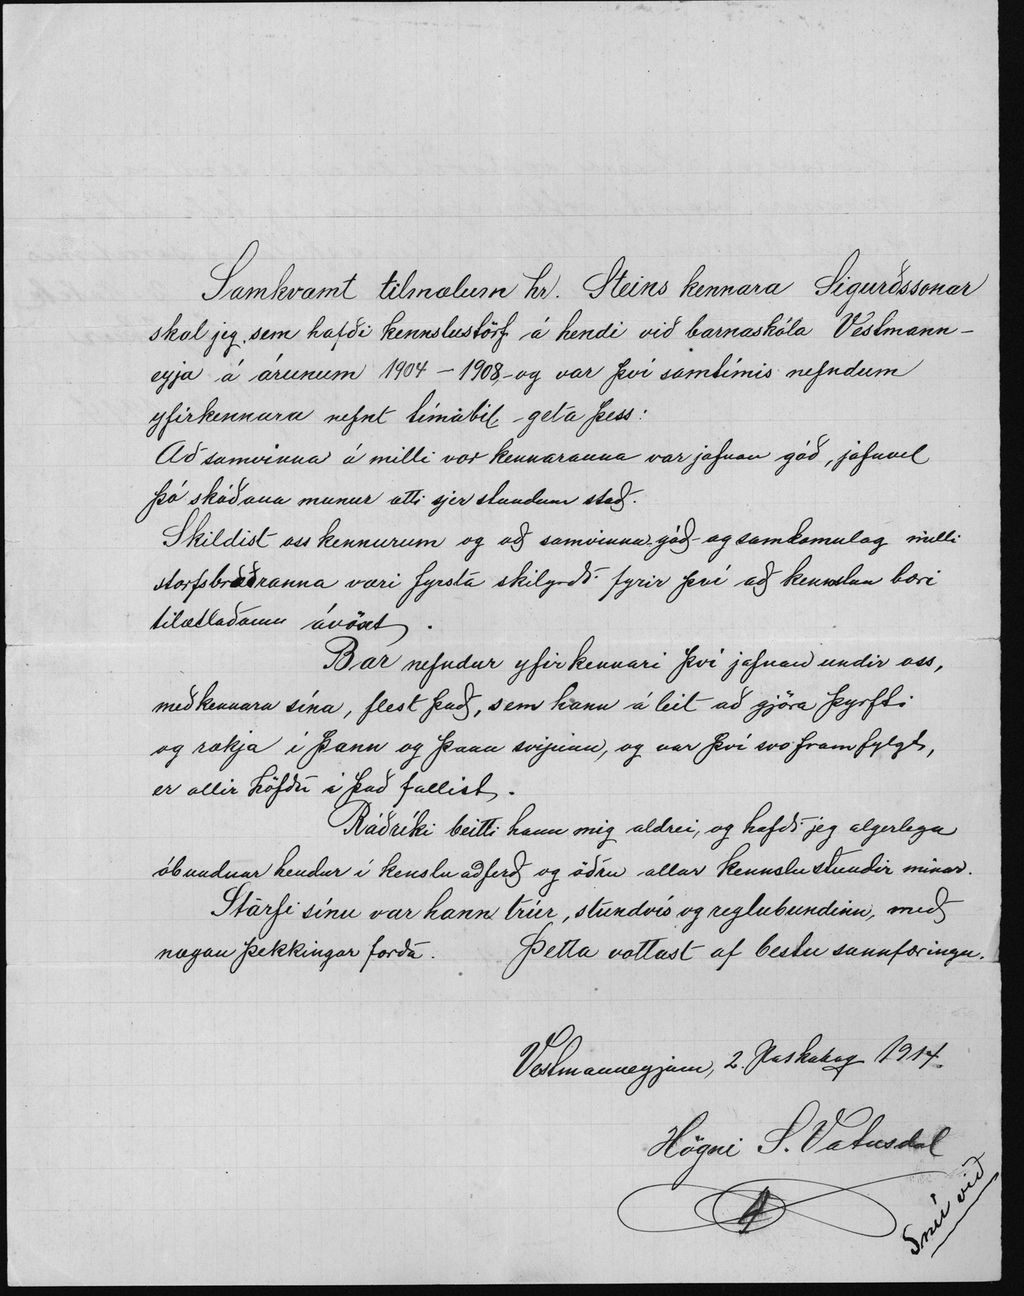 Samkvæmt tilmælum hr. Steins kennara Sigurðssonar
skal jeg, sem hafði kennslustörf á hendi við barnaskóla Vestmann-
eyja á árunum 1904 - 1908, - og var því samtímis nefndum
yfirkennara nefnt tímabil, - geta þess:
Að samvinna á milli vor kennaranna var jafnan góð, jafnvel
þó skoðana munur ætti sjer stundum stað.
Skildist oss kennurum og að samvinna góð - og samkomulag milli
starfsbræðranna væri fyrsta skilyrði fyrir því að kennslan bæri
tilætlaðann ávöxt.
Bar nefndur yfirkennari því jafnan undir oss,
meðkennara sína, flest það, sem hann áleit að gjöra þyrfti
og rækja í þann og þann svipinn, og var því svo framfylgt,
er allir höfðu í það fallist.
Ráðríki beitti hann mig aldrei, og hafði jeg algerlega
óbundnar hendur í kenslu aðferð og öðru allar kennslustundir mínar.
Starfi sínu var hann trúr, stundvís og reglubundinn, með
nægan þekkingar forða. Þetta vottast af bestu sannfæringu.
Vestmannaeyjum, 2. Páskadag 1914.
Högni S. Vatnsdal
Snúi við